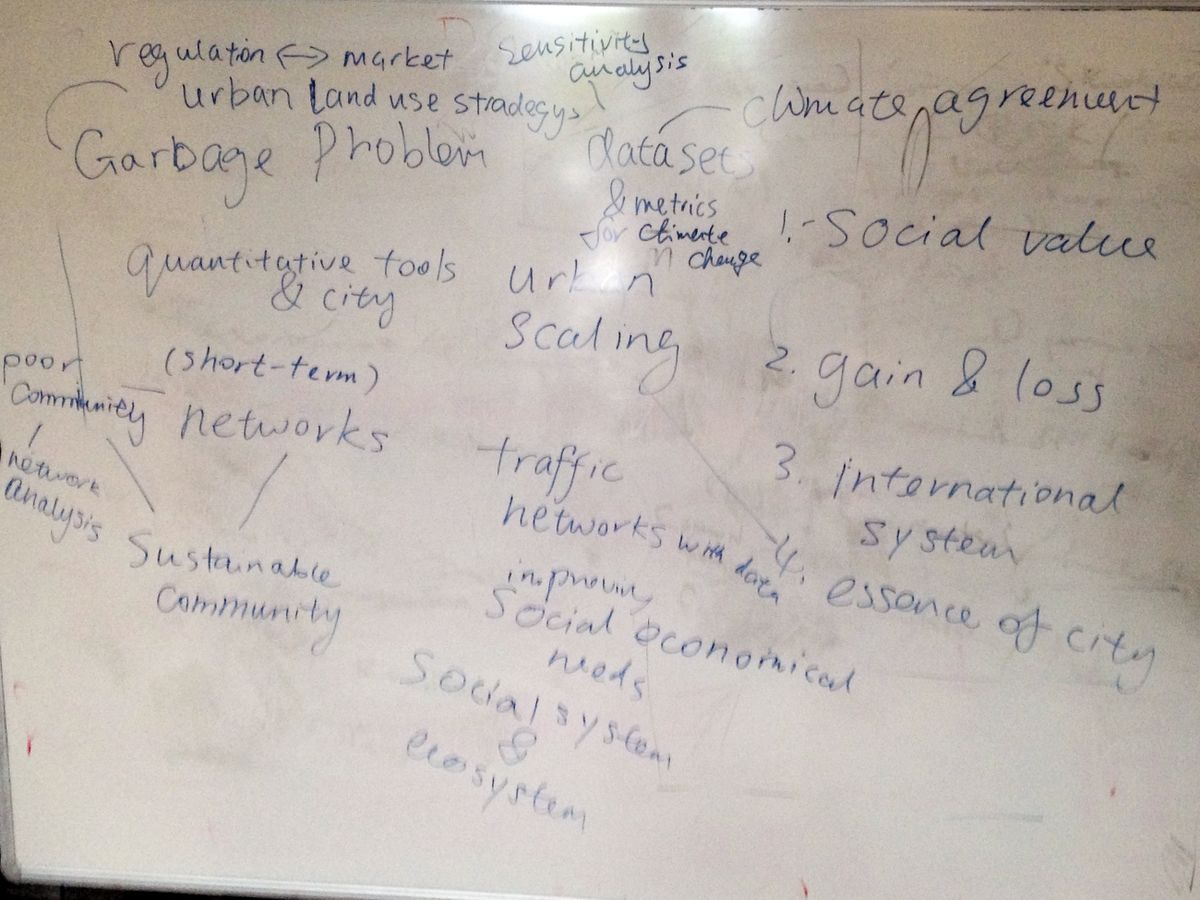 regulation <-> market
sensitivity
analysis
urban land use stradegys
climate agreement
Garbage Problem
datasets
& metrics
for climate
change
1. Social value
quantitative tools
& city
urban
scaling
2. gain & loss
poor
community
(short-term)
networks
network
analysis
traffic
networks with data
3. international
system
sustainable
community
improving
social economical
needs
4. essence of city
social system
&
ecosystem